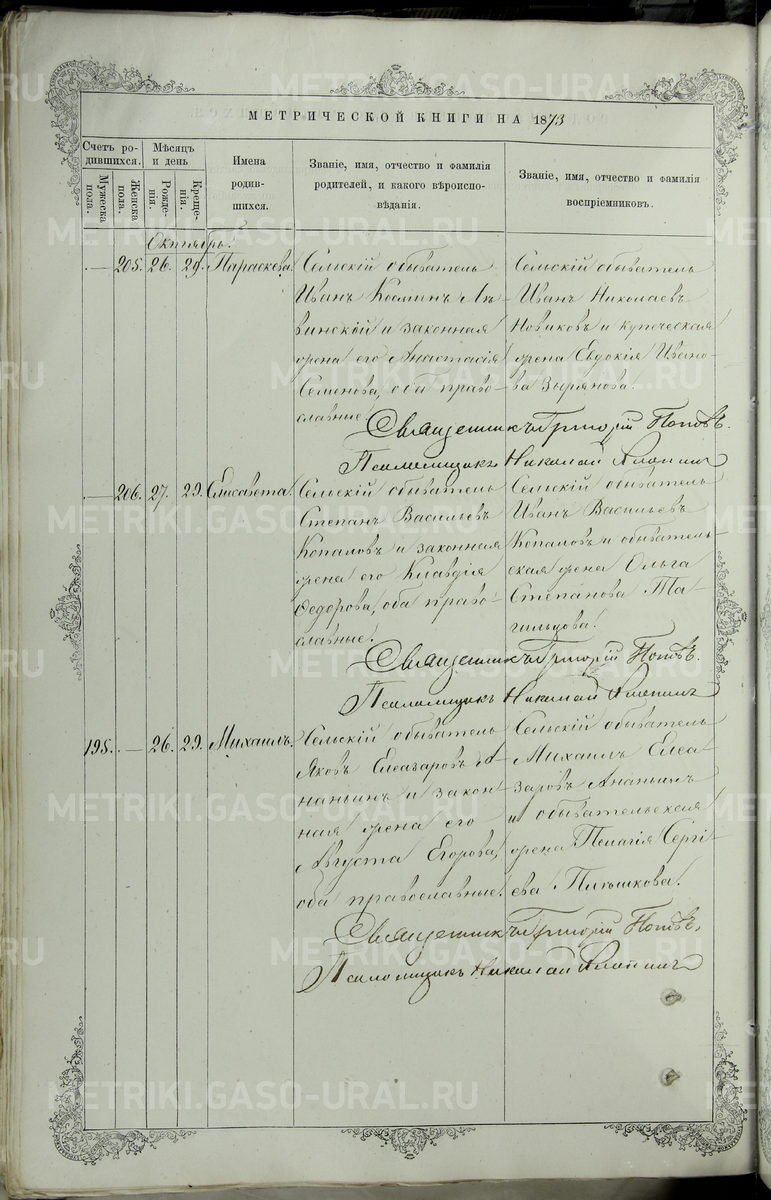 МЕТРИЧЕСКОЙ КНИГИ НА 1873
Счетъ ро-
дившихся.
Мѣсяцъ
и день
Имена
родив-
шихся.
Званіе, имя, отчество и фамилія
родителей, и какого вѣроиспо-
вѣданія.
Званіе, имя, отчество и фамилія
воспріемниковъ.
Мужеска
пола.
Женска
пола.
Рожде-
нія.
Креще-
нія.
Октябрь.
— 205. 26. 29. Параскева.
Сельскій обыватель
Иванъ Козминъ Ля-
винской и законная
жена его Анастасія
Семенова, оба право-
славные.
Сельскій обыватель
Иванъ Николаевъ
Новиковъ и купеческая
жена Евдокія Ивано-
ва Зырянова.
Священникъ Григорій Поповъ.
Псаломщикъ Николай
— 206. 27. 29. Елисавета.
Сельскій обыватель
Степанъ Васильевъ
Копаловъ и законная
жена его Клавдія
Федорова, оба право-
славные.
Сельскій обыватель
Иванъ Васильевъ
Копаловъ и обыватель-
ская жена Ольга
Степанова Та-
гильцова.
Священникъ Григорій Поповъ.
Псаломщикъ Николай
198. — 26. 29. Михаилъ.
Сельскій обыватель
Яковъ Елеазаровъ А-
наньинъ и закон-
ная жена его
Августа Егорова,
оба православные.
Сельскій обыватель
Михаилъ Елеа-
заровъ Ананьинъ
и обывательская
жена Пелагія Сергі-
ева Пигышкова.
Священникъ Григорій Поповъ.
Псаломщикъ Николай
METRIKI.GASO-URAL.RU